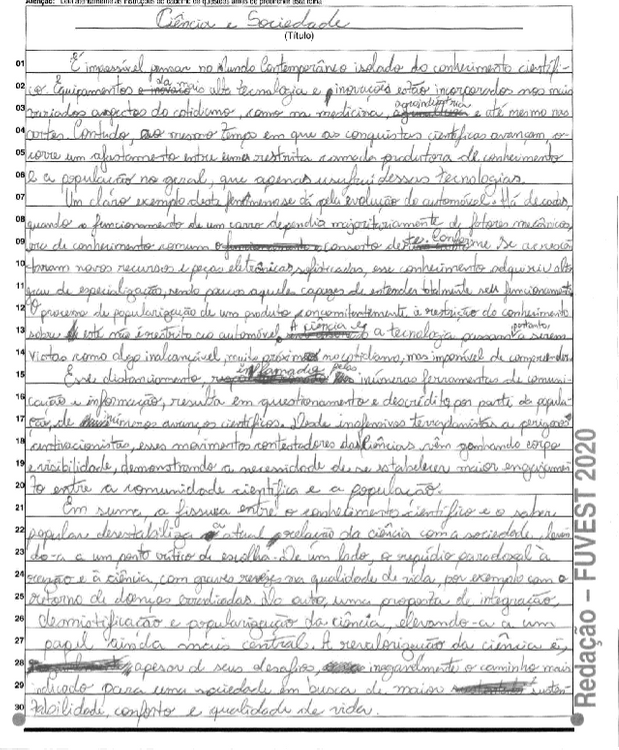 Atenção: Leia atentamente as instruções do caderno de questões antes de preencher esta folha
Ciência e Sociedade
(Título)
01 É impossível pensar no Mundo Contemporâneo isolado do conhecimento científi-
02 co. Equipamentos da mais alta tecnologia e inovações estão incorporados nos mais
03 variados aspectos do cotidiano, como na medicina, agroindústria e até mesmo nas
04 artes. Contudo, ao mesmo tempo em que as conquistas científicas avançam, o-
05 corre um afastamento entre uma restrita camada produtora de conhecimento
06 e a população no geral, que apenas usufrui dessas tecnologias.
07 Um claro exemplo deste fenômeno se dá pela evolução do automóvel. Há décadas,
08 quando o funcionamento de um carro dependia majoritariamente de fatores mecânicos,
09 era de conhecimento comum o conserto deste. Conforme se acrescen-
10 taram novos recursos e peças eletrônicas sofisticadas, esse conhecimento adquiriu alto
11 grau de especialização, sendo poucos aqueles capazes de entender totalmente seu funcionamento.
12 O processo de popularização de um produto concomitantemente à restrição do conhecimento
13 sobre este não é restrito ao automóvel. A ciência e a tecnologia passam, portanto, a serem
14 vistas como algo inalcançável, muito próximo no cotidiano, mas impossível de compreender.
15 Esse distanciamento, inflamado pelas inúmeras ferramentas de comuni-
16 cação e informação, resulta em questionamento e descrédito por parte da popula-
17 ção, de inúmeros avanços científicos. Desde inofensivos terraplanistas a perigosos
18 antivacionistas, esses movimentos contestadores das Ciências vêm ganhando corpo
19 e visibilidade, demonstrando a necessidade de se estabelecer maior engajamen-
20 to entre a comunidade científica e a população.
21 Em suma, a fissura entre o conhecimento científico e o saber
22 popular desestabiliza a atual relação da ciência com a sociedade, levan-
23 do-a a um ponto crítico de escolha. De um lado, o repúdio paradoxal à
24 razão e à ciência, com graves revezes na qualidade de vida, por exemplo com o
25 retorno de doenças erradicadas. No outro, uma proposta de integração,
26 desmistificação e popularização da ciência, elevando-a a um
27 papel ainda mais central. A revalorização da ciência é,
28 apesar de seus desafios, inegavelmente o caminho mais
29 indicado para uma sociedade em busca de maior susten-
30 tabilidade, conforto e qualidade de vida.
Redação – FUVEST 2020